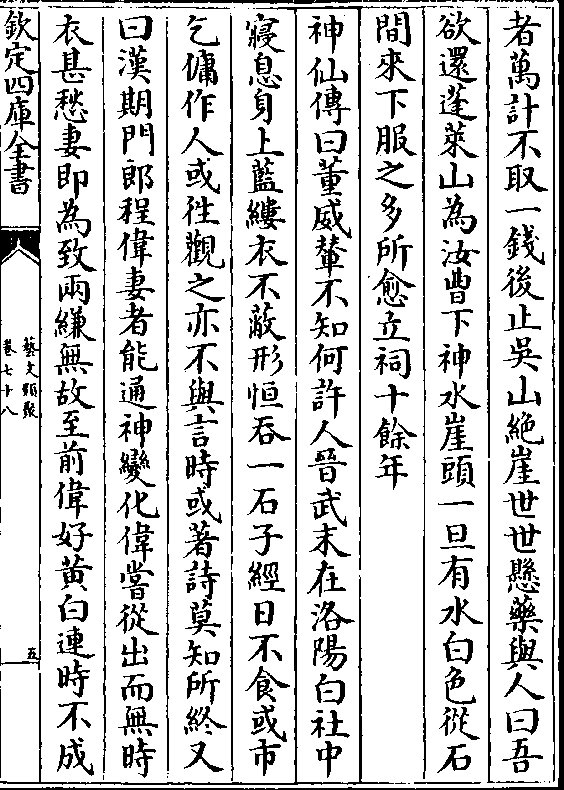 者萬計不取一錢後止吳山絶崖世世懸藥與人曰吾
欲還蓬萊山為汝曹下神水崖頭一旦有水白色從石
間來下服之多所愈立祠十餘年
神仙傳曰董威輦不知何許人晉武末在洛陽白社中
寢息身上藍縷衣不蔽形恒吞一石子經日不食或市
乞傭作人或往觀之亦不與言時或著詩莫知所終又
曰漢期門郎程偉妻者能通神變化偉嘗從出而無時
衣甚愁妻即為致兩縑無故至前偉好黄白連時不成
欽定四庫全書
藝文類聚
卷七十八
五